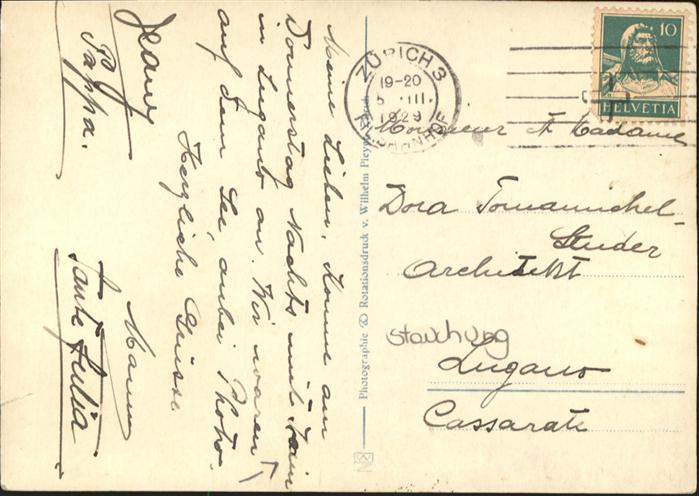 Meine Lieben, Komme am
Donnerstag Nachts mit Zain
in Lugano an. Wir waren
auf dem See, anbei Photo.
Herzliche Grüsse
Mamma
Tante Julia
Pappa.
ZÜRICH 3
19-20
5. III.
1929
BAHNHOF
10
HELVETIA
Monsieur & Madame
Dora Tomamichel-
Studer
Architekt
stauchung
Lugano
Cassarate
Photographie & Rotationsdruck v. Wilhelm Pleyer, Zürich